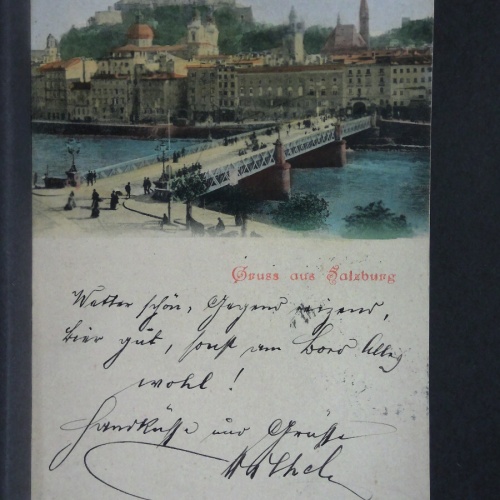 Gruss aus Salzburg
Wetter schön, Gegend reizend,
Bier gut, sonst am Bord Alles
wohl!
Handküsse und Grüsse